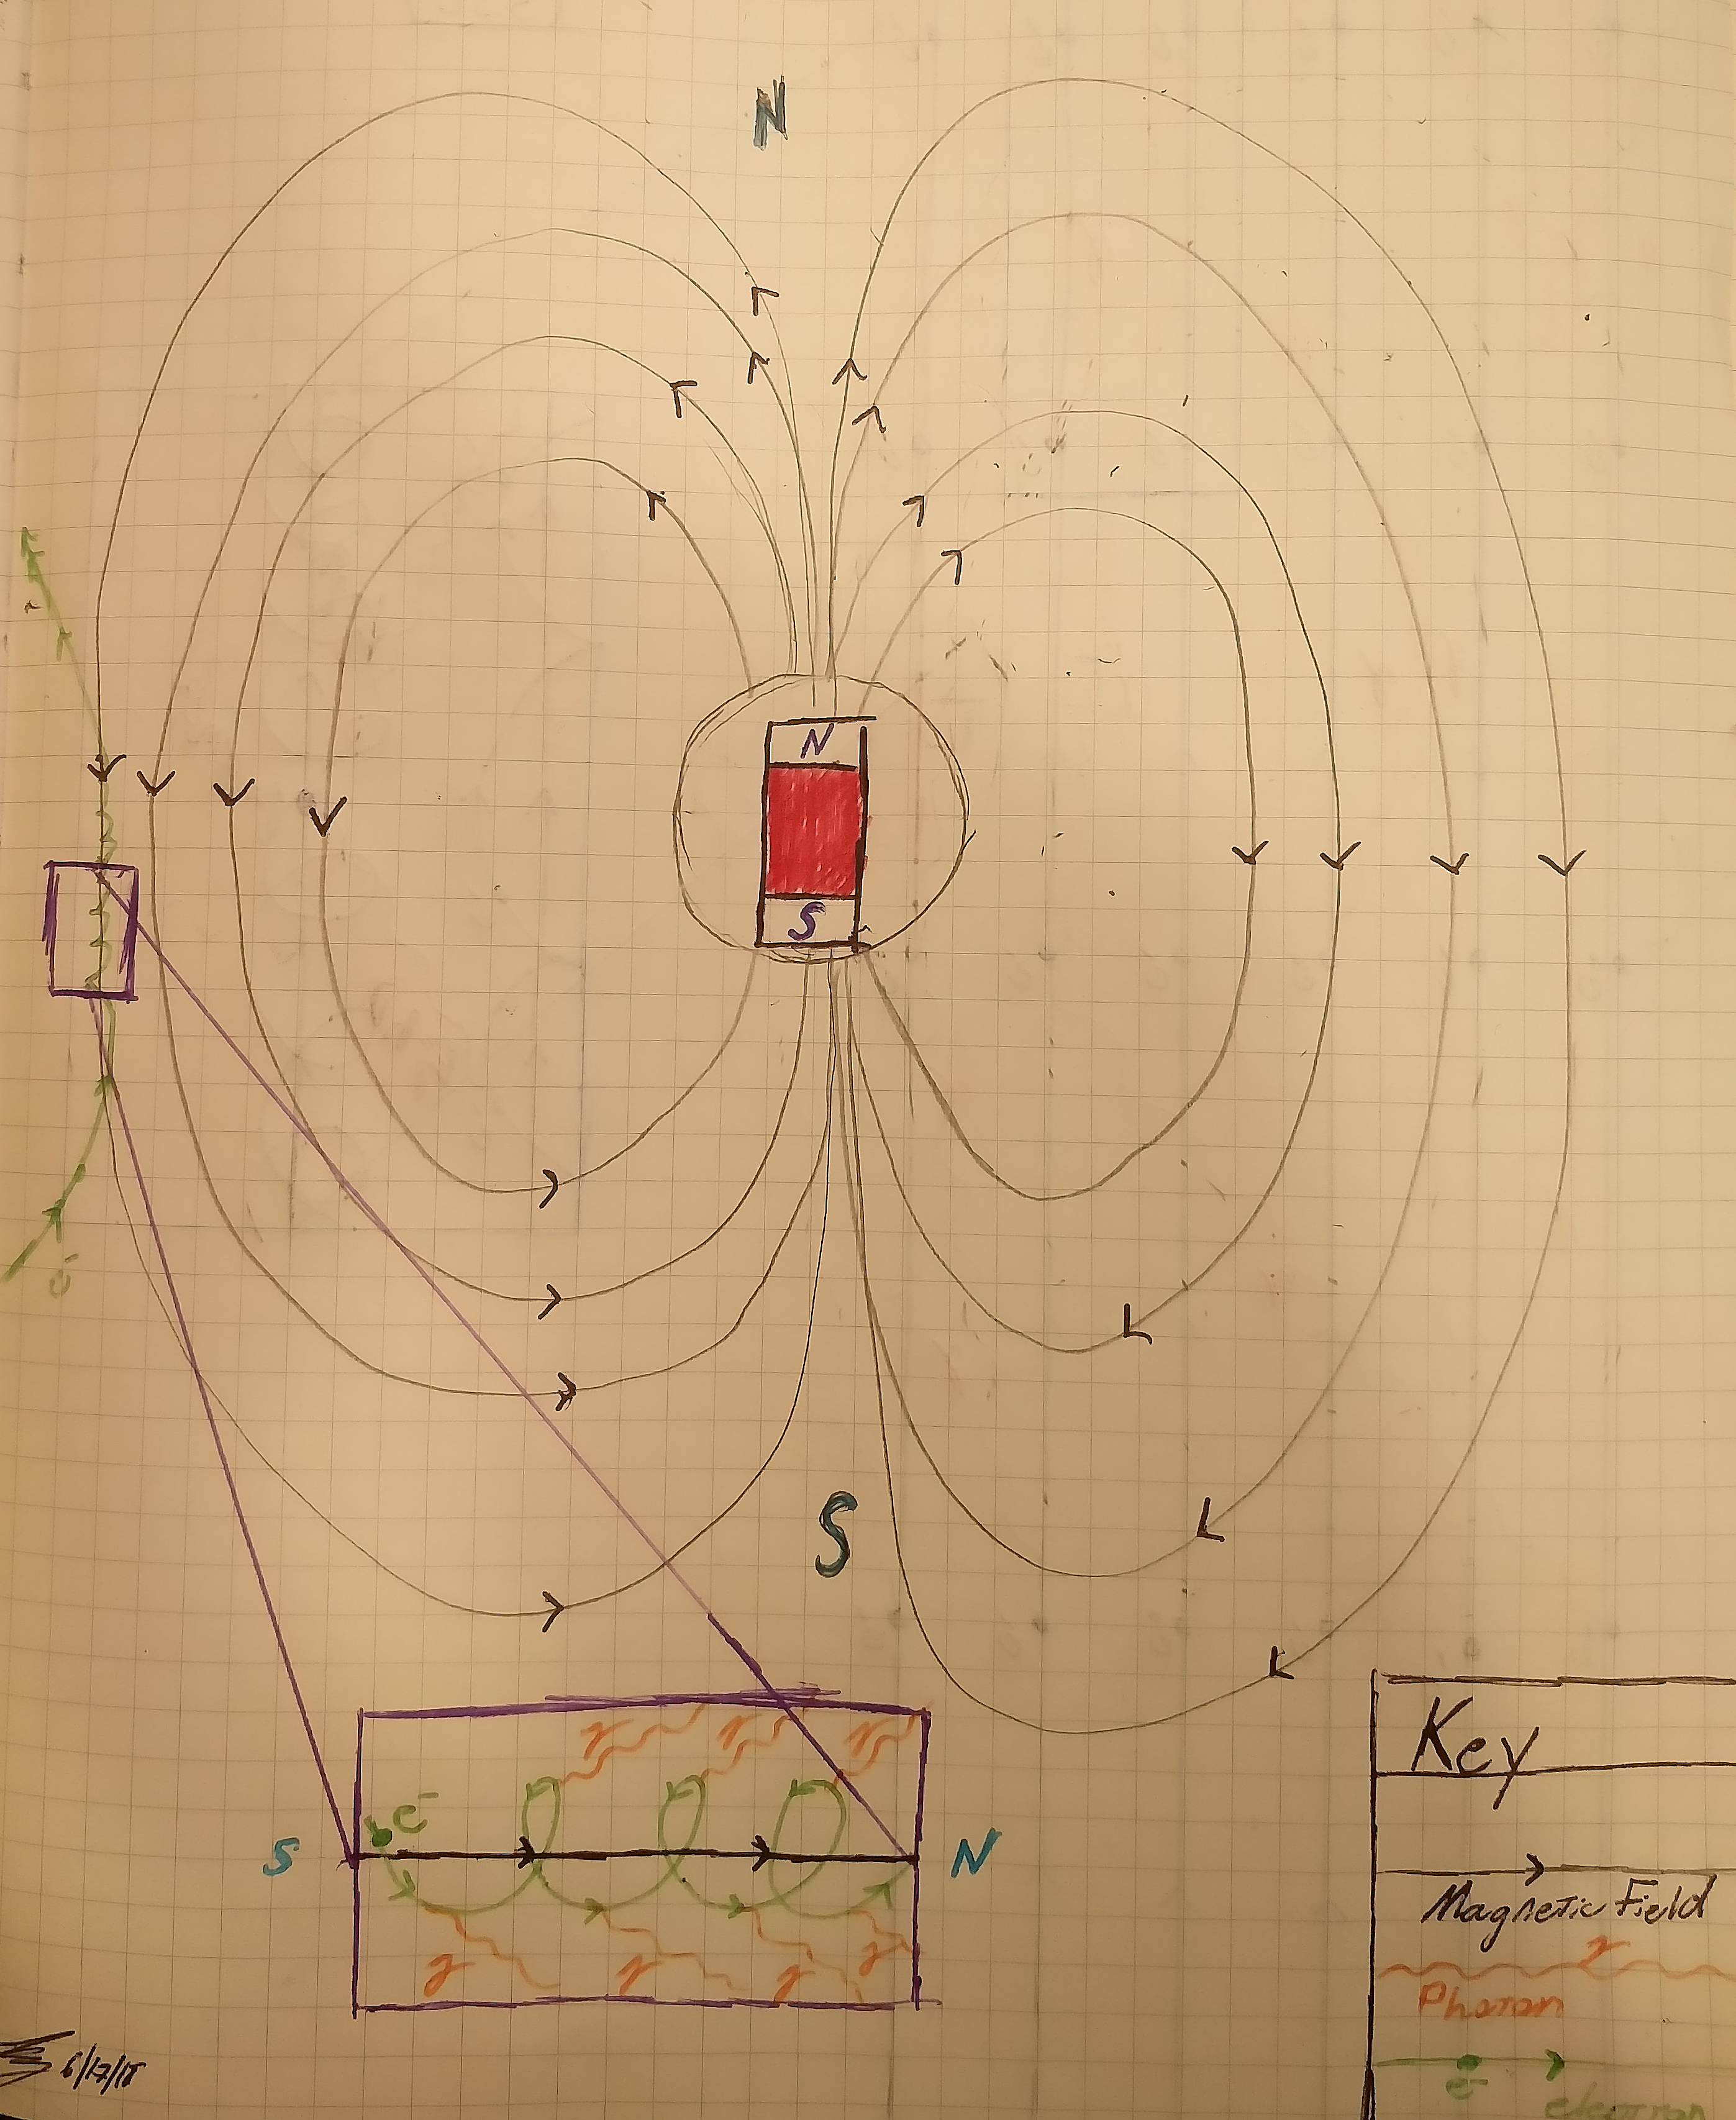 N
N
S
e⁻
S
γ γ γ
e⁻
S N
γ γ γ γ
Key
Magnetic Field
γ
Photon
e⁻
electron
6/17/18